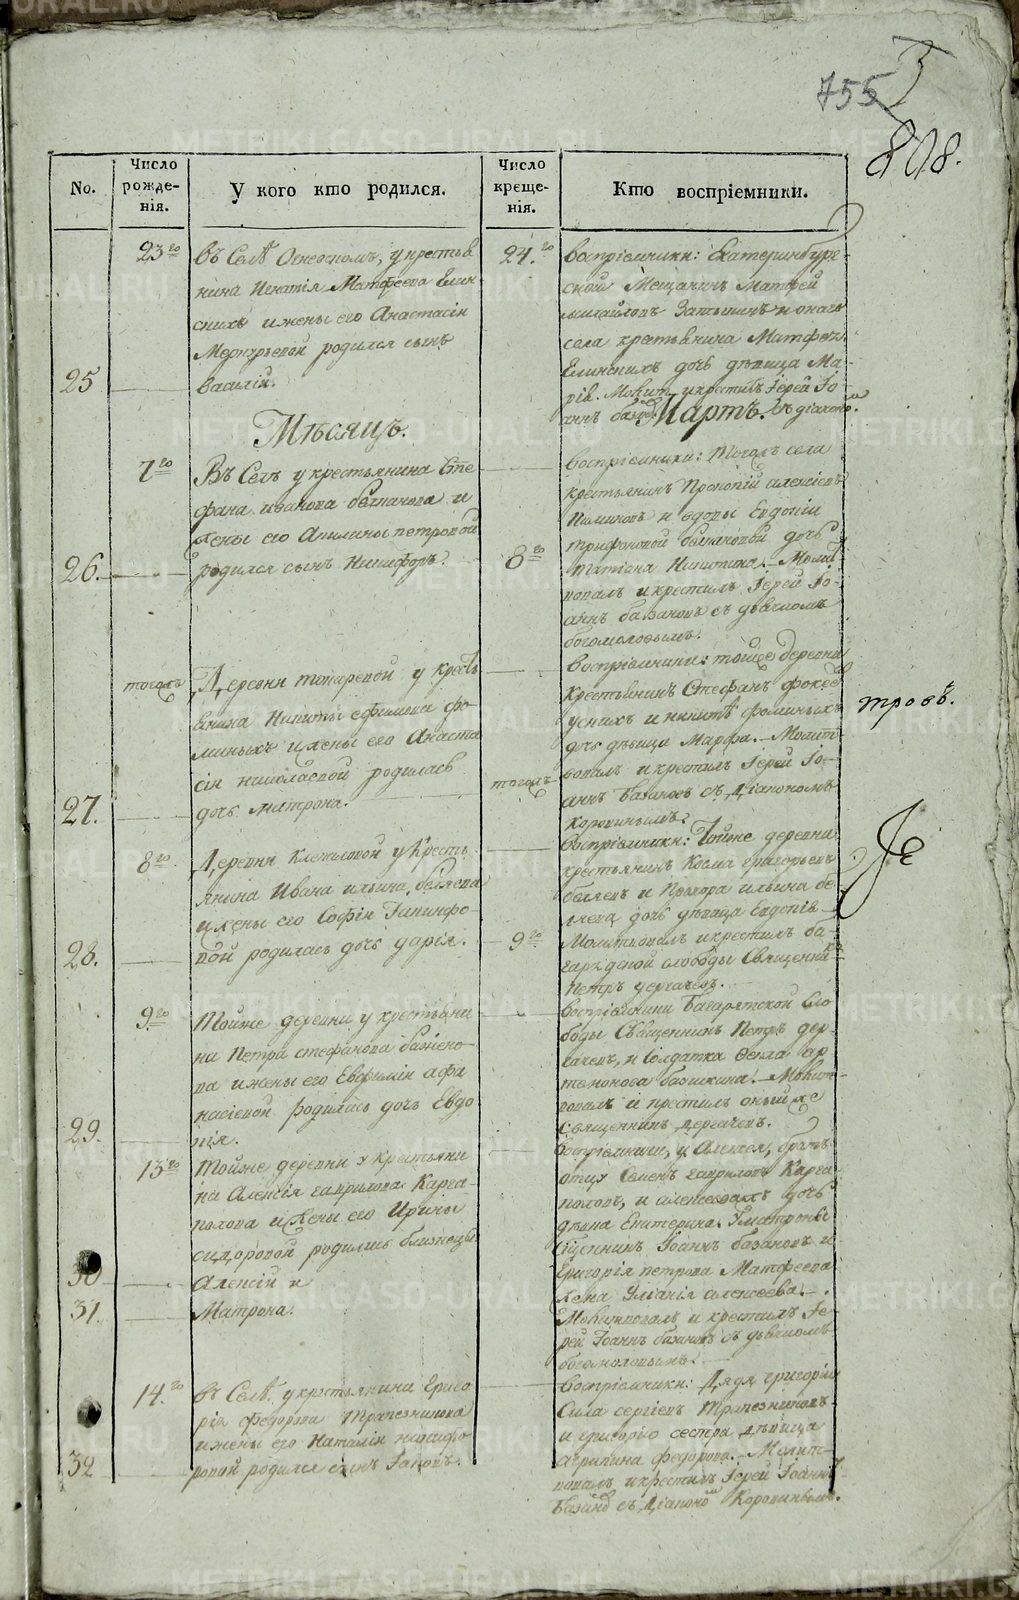 755
808.
No.
Число рожде-нія.
У кого кто родился.
Число креще-нія.
Кто воспріемники.
25
23го
въ Селѣ Огневскомъ, у крестья
нина Игнатія Матфеева Елин
скихъ и жены его Анастасіи
Меркурьевой родился сынъ
Василій.
24.го
Воспріемники: Екатеринбург-
ской Мещанинъ Матфей
Михайловъ и онаго
села крестьянина Матфея
Елинскихъ дочь дѣвица Ма-
рія. Молит. и крестилъ Іерей Іо-
аннъ База съ діакономъ
Мѣсяцъ.
Мартъ.
26.
7го
Въ Селѣ у крестьянина Сте
фана Иванова и
жены его Акилины Петровой
родился сынъ Никифоръ.
8го
Воспріемники: Тогожъ села
крестьянинъ Прокопій Алексѣевъ
и вдовы Евдокіи
Трифоновой дочь
Татіана Никитина. Молит
вовалъ и крестилъ Іерей Іо-
аннъ Базановъ съ дьячкомъ
Богомоловымъ.
27.
тогожъ
Деревни Токаревой у кресть
янина Никиты Ефимова Фо-
миныхъ и жены его Анаста
сіи Николаевой родилась
дочь Матрона.
тогожъ
Воспріемники: тойже деревни
крестьянинъ Стефанъ
и Никиты Фоминыхъ
дочь дѣвица Марфа. Молит
вовалъ и крестилъ Іерей Іо-
аннъ Базановъ съ Діакономъ
Коровинымъ.
тровъ.
28.
8го
Деревни Клепаловой у Кресть
янина Ивана Ильина Беляева
и жены его Софіи Никифо-
вой родилась дочь Дарія.
9го
Воспріемники: Тойже деревни
крестьянинъ Косма Григорьевъ
Беляевъ и Прохора Ильина Бе-
ляева дочь дѣвица Евдокія
Молитвовалъ и крестилъ Ба-
гарядской слободы Священникъ
Петръ Дергачевъ.
29.
9го
Тойже деревни у крестьяни
на Петра Стефанова Бажено-
ва и жены его Евфиміи Афа
насіевой родилась дочь Евдо
кія.
Воспріемники Багарятской Сло
боды Священникъ Петръ Дер-
гачевъ, и Солдатка Фекла Ар
темонова Базикина. Молит-
вовалъ и крестилъ оный же
Священникъ Дергачевъ.
30
31.
13го
Тойже деревни у крестьяни
на Алексія Гаврилова Карга-
полова и жены его Ирины
Сидоровой родились близнецы
Алексій и
Матрона.
Воспріемники, у Алексея, братъ
отцу Семенъ Гавриловъ Карга
половъ, и дочь
дѣвка Екатерина. У Матроны
Священникъ Іоаннъ Базановъ и
Григорія Петрова Матфеева
жена Уліанія Алексеева.
Молитвовалъ и крестилъ Іе-
рей Іоаннъ Базановъ съ дьячкомъ
Богомоловымъ.
32
14.го
въ Селѣ у крестьянина Григо
рія Федорова Трапезникова
и жены его Наталіи Никифо
ровой родился сынъ Іаковъ.
Воспріемники: Дядя Григорію
Сила Сергіевъ Трапезниковъ
и Григорію сестра дѣвица
Агрипина Федорова. Молит-
вовалъ и крестилъ Іерей Іоаннъ
Базановъ съ Діакономъ Коровинымъ.
METRIKI.GASO-URAL.RU